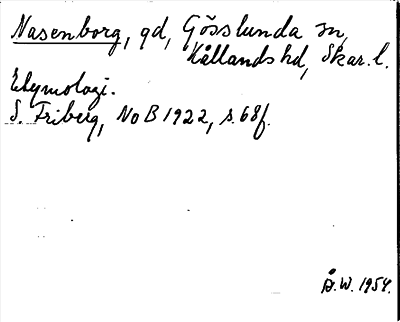 Nasenborg, gd, Gösslunda sn,
Kållands hd, Skar. l.
Etymologi.
S. Friberg, NoB 1922, s. 68 f.
Å.W. 1954.